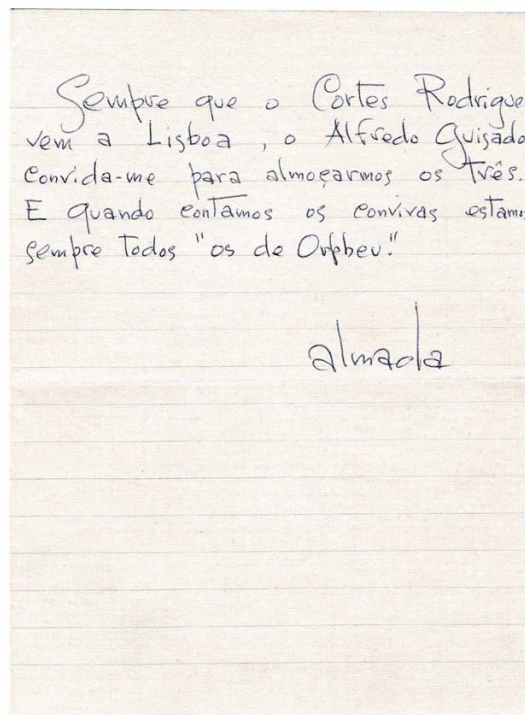 Sempre que o Cortes Rodrigue
vem a Lisboa, o Alfredo Guisado
convida-me para almoçarmos os três.
E quando contamos os convivas estamos
sempre todos "os de Orpheu."
almada